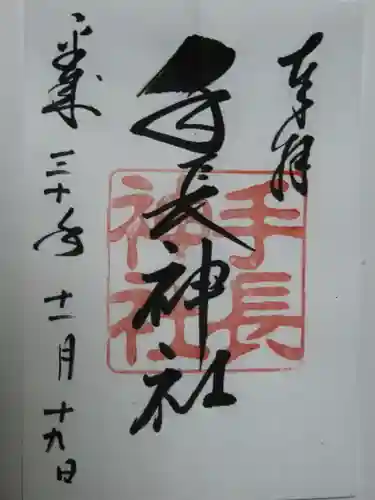 奉拝
手長神社
手長
神社
平成三十年十一月十九日